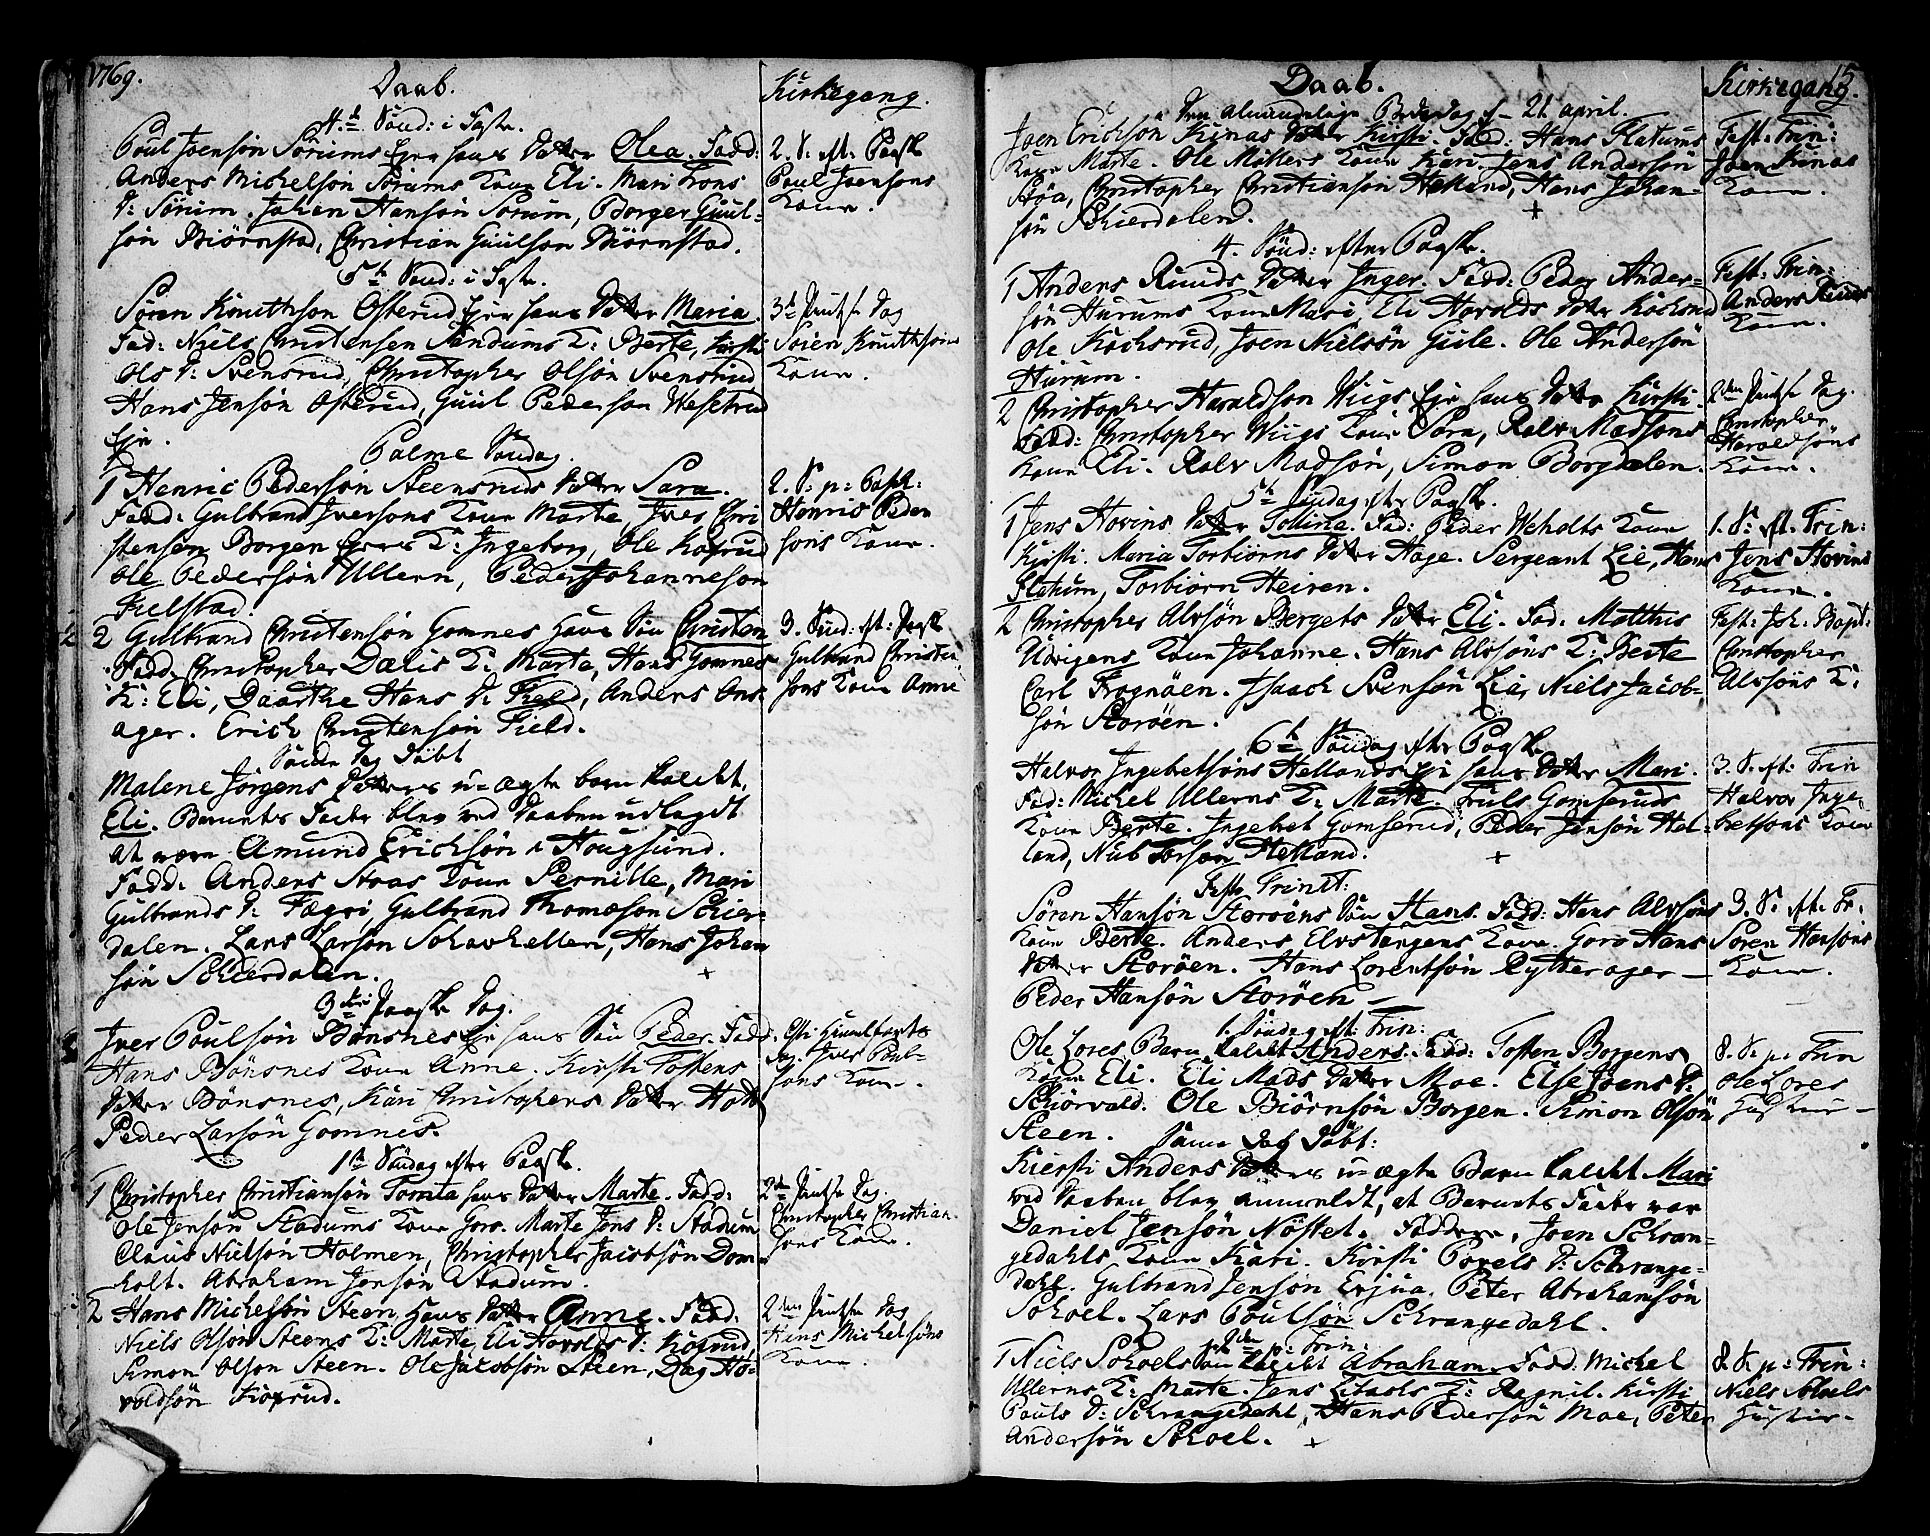 1769.
Daab.
Kirkegang.
4de Sönd: i Faste.
Poul Joensön Sörums Eje hans datter Olea. Fadd:
Anders Michelsön Sörums Kone Eli. Mari Trons
d: Sörum. Johan Hansön Sörum, Borger Guul-
sön Biörnstad, Christian Guulsön Biörnstad.
2. S. eft. Paaske
Poul Joensöns
Kone.
5te Sönd: i Faste.
Sören Knuthsön Osterud Eje hans datter Maria.
Fad: Niels Christensen Sandums K: Berte, Kirsti
Ols d: Svensrud, Christopher Olsön Svensrud
Hans Jensön Osterud, Guul Pedersön Westrud
Eje.
3de Pintse dag
Sören Knuthsöns
Kone.
Palme Söndag.
1 Henric Pedersön Steensruds datter Sara.
Fadd: Gulbrand Jversöns Kone Marte, Jver Chri
stensen Borgen Ejes K: Ingeborg, Ole Koxrud
Ole Pedersön Ullern, Peder Johannesön
Fielstad.
2. S: p: Pasch:
Henric Peder
söns Kone.
2 Gulbrand Christensön Gomnes hans Sön Christen
Fadd: Christopher Dælis K: Marte, Hans Gomnes
K: Eli, Daarthe Hans d: Field, Anders Ons-
ager. Erich Christensön Field.
3. Sönd: eft: Paaske
Gulbrand Christen
söns Kone Anne
Samme dag döbt
Malene Jörgens datters u-ægte barn kaldet
Eli. Barnets Fader blev ved daaben udlagdt
at være Amund Erichsön i Hougsund.
Fadd: Anders Moas Kone Pernille, Mari
Gulbrands d: Fægri, Gulbrand Thomæsön Schier-
dalen. Lars Larsön Schavhellen, Hans Johan
sön Schierdalen.
3die Paaske dag.
Jver Poulsön Bönsnes Eje hans Sön Peder. Fadd:
Hans Bönsnes Kone Anne. Kirsti Tostens
datter Bönsnes, Kari Christophers datter
Peder Larsön Gomnes.
Chr. Himmelfarts
dag. Jver Poul-
söns Kone.
1te Söndag efter Paaske.
1 Christopher Christiansön Tornita hans datter Marte. Fadd:
Ole Jensön Stadums Kone Goro. Marte Jens d: Stadum
Claus Nielsön Holmen, Christopher Jacobsön Dom-
holt. Abraham Jensön Stadum.
2den Pintse dag.
Christopher Christian-
söns Kone.
2 Hans Michelsön Steen hans datter Anne. Fadd:
Niels Olsön Steens K: Marte, Eli Harolds d: Koxrud,
Simon Olsön Steen. Ole Jacobsön Steen, Dag Ha-
roldsön Koxrud.
2den Pintse dag
Hans Michelsöns
Kone.
15
Daab.
Kirkegang.
Den almindelige Bededag d. 21 april.
Joen Erichsön Kinas datter Kirsti. Fadd: Hans Flatums
Kone Marte. Ole Möllers Kone Kari Jens Andersön
Höa, Christopher Christiansön Helland, Hans Johan-
sön Schierdalen.
Fest. Trin:
Joen Kinas
Kone.
4. Sönd: efter Paaske.
1 Anders Ruuds datter Inger. Fadd: Peder Anders-
sön Hurums Kone Mari, Eli Harolds datter Kocksrud
Ole Kocksrud, Joen Nielsön Güle. Ole Andersön
Hurum.
Fest. Trin:
Anders Ruuds
Kone.
2 Christopher Haraldsön Wiigs Eje hans datter Kirsti.
Fadd: Christopher Wiigs Kone Sara, Rolv Madsöns
Kone Eli. Rolv Madsön, Simon Borgdalen.
2den Pintse dag.
Christopher
Haraldsöns
Kone.
5te Söndag efter Paaske.
1 Jens Hovins datter Tolline. Fad: Peder Weholts Kone
Kirsti. Maria Torbiörns datter Hage. Sergeant Lie, Hans
Flatum, Torbiörn Heiren.
1. S: eft. Trin:
Jens Hovins
Kone.
2 Christopher Alvsön Bergets datter Eli. Fad: Matthis
Udrigens Kone Johanne. Hans Alvsöns K: Berte
Carl Frognöen. Isaach Svensön Lie, Niels Jacob-
sön Storöen.
Fest: Joh: Bapt:
Christopher
Alvsöns K:
6te Söndag efter Paaske
Halvor Ingebretsöns Hellands Eje hans datter Mari.
Fad: Michel Ullerns K: Marte Truls Gomseruds
Kone Berte. Ingebret Gomserud, Peder Jensön Hel-
land, Nub Torsön Helland.
3. S. eft: Trin
Halvor Inge-
bretsöns Kone
Festo Trinit:
Sören Hansön Storöens Sön Hans. Fadd: Hans Alvsöns
Kone Berte. Anders Elvstangens Kone. Goro Hans
datter Storöen. Hans Lorentsön Rytterager –
Peder Hansön Storöen –
3. S. eft. Tr.
Sören Hansöns
Kone.
1. Söndag eft: Trin:
Ole Lores Barn kaldet Anders. Fadd: Tosten Borgens
Kone Eli. Eli Mads datter Moe. Else Joens d:
Schiörvald. Ole Biörnsön Borgen. Simon Olsön
Steen.
8. S. p. Trin
Ole Lores
Hustrue –
Samme dag döbt:
Kiersti Anders datters u-ægte Barn kaldet Mari
ved daaben blev anmeldt, at Barnets Fader var
Daniel Jensön Nöstet. Faddere, Joen Schran-
gedahls Kone Kari. Kirsti Povels d: Schrange-
dahl. Gulbrand Jensön Erjua. Peter Abrahamsön
Sohoel. Lars Poulsön Schrangedahl.
2den p: Trin:
1 Niels Sohoels Sön kaldet Abraham. Fadd: Michel
Ullerns K: Marte. Jens K: Ragnil. Kirsti
Pouls d: Schrangedahl, Hans Pedersön Moe, Peter
Andersön Sohoel.
8. S. p: Trin:
Niels Sohoels
Hustrue –